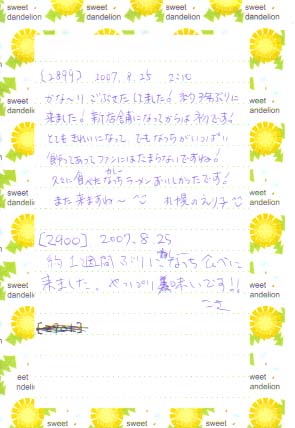 sweet dandelion
[2899] 2007.8.25 2:10
かな〜り ごぶさたしてました! 約 ぶりに
来ました! 新店舗になってからは初です!
とてもきれいになって、でもなっちがいっぱい
飾ってあってファンにはたまらないですね!
久々に食べたなっちカレーラーメンおいしかったです!
また来ますね〜 札幌のえり子
[2900] 2007.8.25
約1週間ぶりになっち食べに
来ました。やっぱり美味いです!!